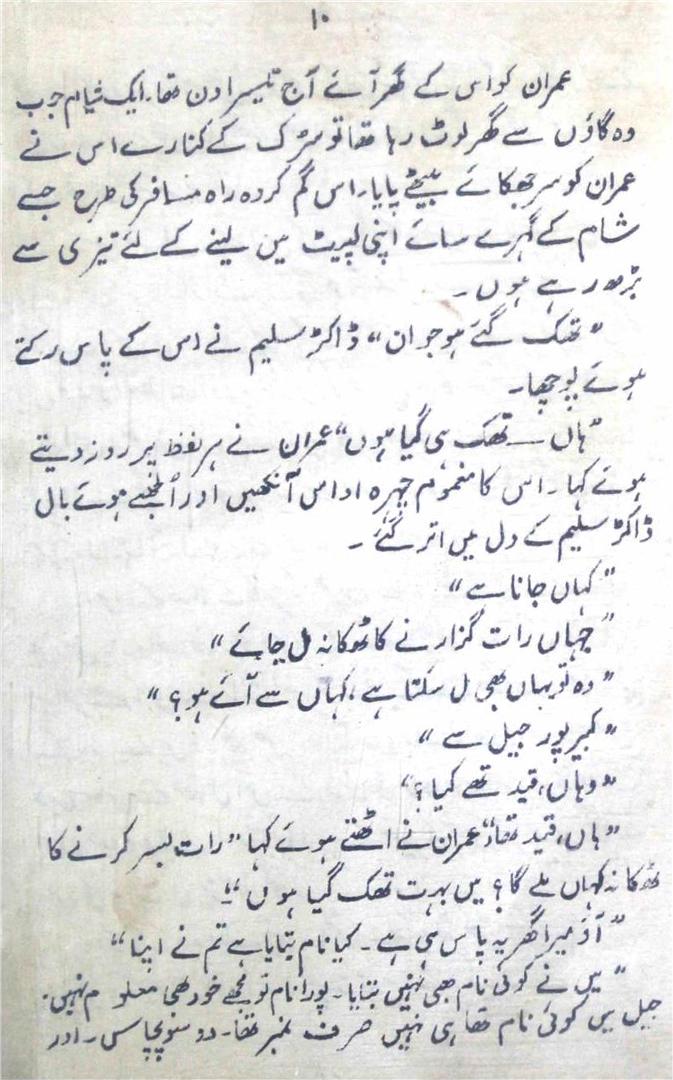 ۱۰
عمران کو اس کے گھر آئے آج تیسرا دن تھا۔ ایک شام جب
وہ گاؤں سے گھر لوٹ رہا تھا تو سڑک کے کنارے اس نے
عمران کو سر جھکائے بیٹھے پایا۔ اس گم کردہ راہ مسافر کی طرح جسے
شام کے گہرے سائے اپنی لپیٹ میں لینے کے لئے تیزی سے
بڑھ رہے ہوں۔
"تھک گئے ہو جوان" ڈاکٹر سلیم نے اس کے پاس رکتے
ہوئے پوچھا۔
"ہاں ــ تھک ہی گیا ہوں" عمران نے ہر لفظ پر زور دیتے
ہوئے کہا۔ اس کا مغموم چہرہ اداس آنکھیں اور اُلجھے ہوئے بال
ڈاکٹر سلیم کے دل میں اتر گئے۔
"کہاں جانا ہے"
"جہاں رات گزارنے کا ٹھکانہ مل جائے"
"وہ تو یہاں بھی مل سکتا ہے، کہاں سے آئے ہو؟"
"کبیر پور جیل سے"
"وہاں، قید تھے کیا؟"
"ہاں، قید تھا" عمران نے اٹھتے ہوئے کہا "رات بسر کرنے کا
ٹھوکانہ کہاں ملے گا؟ میں بہت تھک گیا ہوں"
"آؤ میرا گھر یہ پاس ہی ہے۔ کیا نام بتایا ہے تم نے اپنا"
"میں نے کوئی نام بھی نہیں بتایا۔ پورا نام تو مجھے خود بھی معلوم نہیں۔
جیل میں کوئی نام تھا ہی نہیں صرف نمبر تھا۔ دو سو پچاسی۔ اور